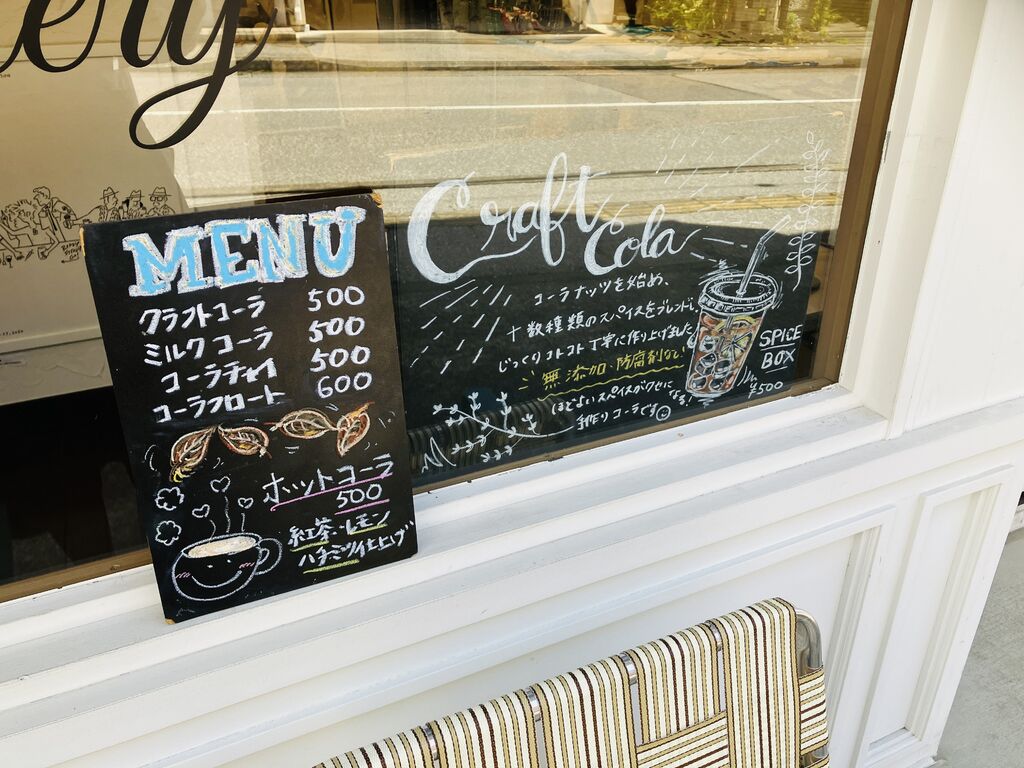 ery
MENU
クラフトコーラ 500
ミルクコーラ 500
コーラチャイ 500
コーラフロート 600
ホットコーラ
500
紅茶・レモン
ハチミツ仕上げ
Craft
Cola
コーラナッツを始め、
十数種類のスパイスをブレンドし、
じっくりコトコト丁寧に作り上げました
無添加・防腐剤なし!
ほどよいスパイスがクセになる!
手作りコーラです
SPICE
BOX
¥500